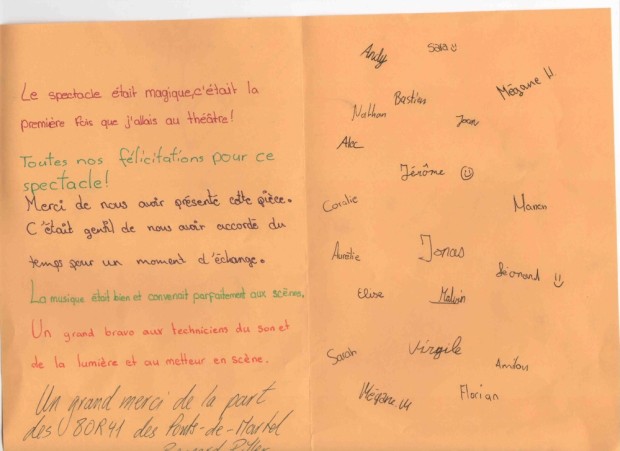 Le spectacle était magique, c'était la
première fois que j'allais au théâtre!
Toutes nos félicitations pour ce
spectacle!
Merci de nous avoir présenté cette pièce.
C'était gentil de nous avoir accordé du
temps pour un moment d'échange.
La musique était bien et convenait parfaitement aux scènes.
Un grand bravo aux techniciens du son et
de la lumière et au metteur en scène.
Un grand merci de la part
des 80R41 des Ponts-de-Martel
Andy
Sara
Mégane
Bastian
Nathan
Joan
Jérôme
Coralie
Manon
Jonas
Aurélie
Léonard
Elise
Malvin
Virgile
Sarah
Florian